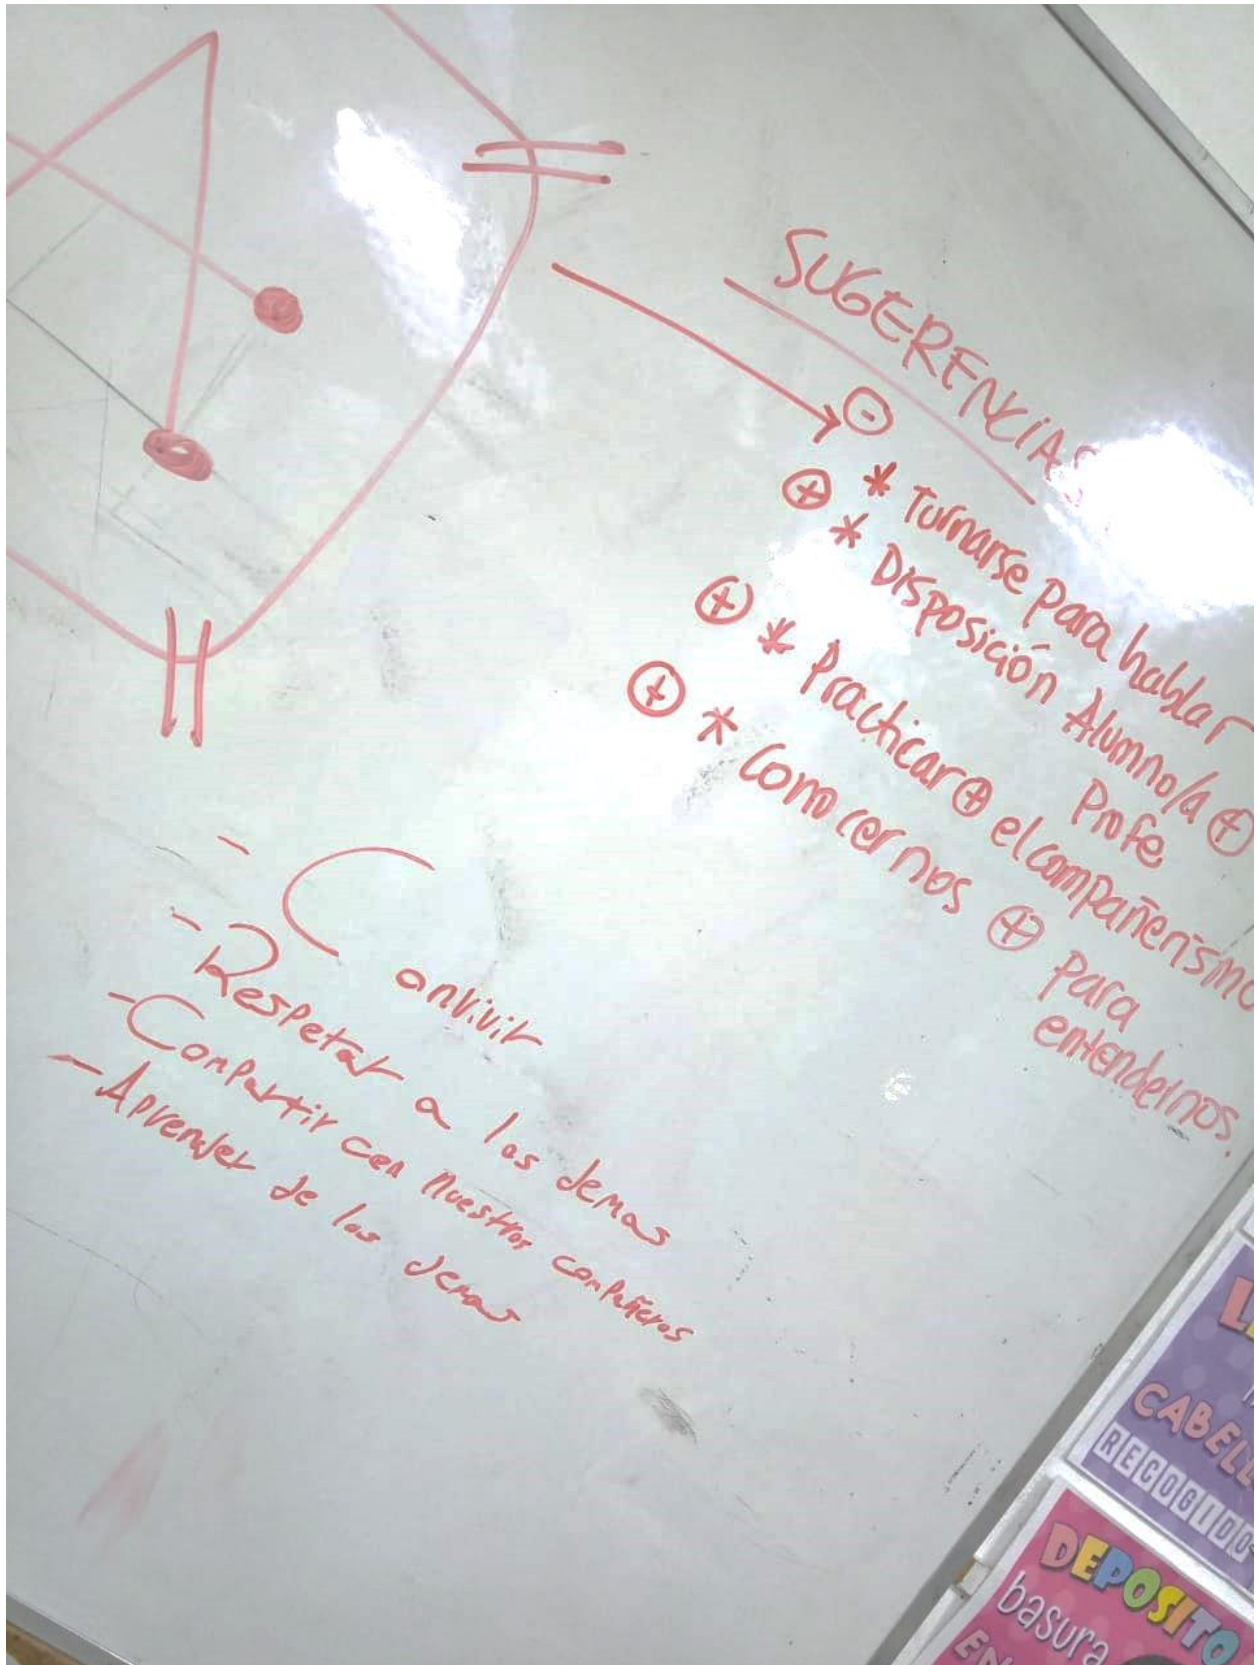 SUGERENCIAS
⊖
⊕ * Turnarse para hablar
⊕ * Disposición Alumno/a ⊕
Profe
⊕ * Practicar ⊕ el compañerismo
* Conocernos ⊕ para
entendernos.
- Convivir
- Respetar a los demas
- Compartir con nuestros compañeros
- Aprender de los demas
CABELL
RECOGIDO
DEPOSITO
basura
EN